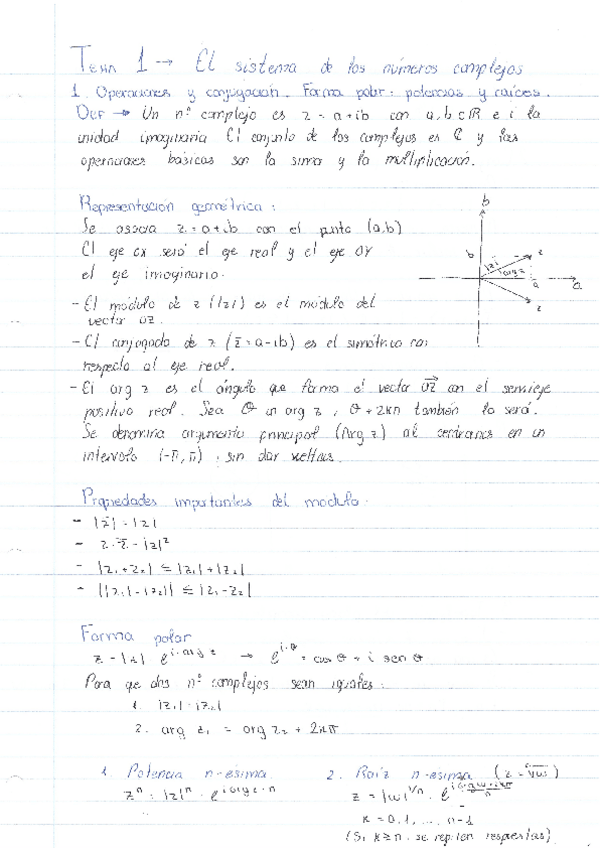 Tema 1 → El sistema de los números complejos
1. Operaciones y conjugación. Forma polar: potencias y raíces.
DEF → Un nº complejo es z = a+ib con a,b ∈ ℝ e i la
unidad imaginaria. El conjunto de los complejos es ℂ y las
operaciones básicas son la suma y la multiplicación.
Representación geométrica:
Se asocia z = a+ib con el punto (a,b)
El eje OX será el eje real y el eje OY
el eje imaginario.
- El módulo de z (|z|) es el módulo del
vector oz.
- El conjugado de z (z̄ = a-ib) es el simétrico con
respecto al eje real.
- El arg z es el ángulo que forma el vector oz con el semieje
positivo real. Sea θ un arg z, θ + 2kπ también lo será.
Se denomina argumento principal (Arg z) al cerrarnos en un
intervalo (-π, π), sin dar vueltas.
b
b
|z|
arg z
z
a
a
z̄
Propiedades importantes del modulo:
- |z̄| = |z|
- z·z̄ = |z|²
- |z₁+z₂| ≤ |z₁|+|z₂|
- ||z₁|-|z₂|| ≤ |z₁-z₂|
Forma polar
z = |z| e^{i·arg z} → e^{i·θ} = cos θ + i sen θ
Para que dos nº complejos sean iguales:
1. |z₁| = |z₂|
2. arg z₁ = arg z₂ + 2kπ
1. Potencia n-esima
zⁿ = |z|ⁿ · e^{i arg z · n}
2. Raíz n-esima (z = ⁿ√w)
z = |w|^{1/n} · e^{i (arg w + 2kπ)/n}
k = 0,1, ..., n-1
(Si k ≥ n se repiten respuestas)